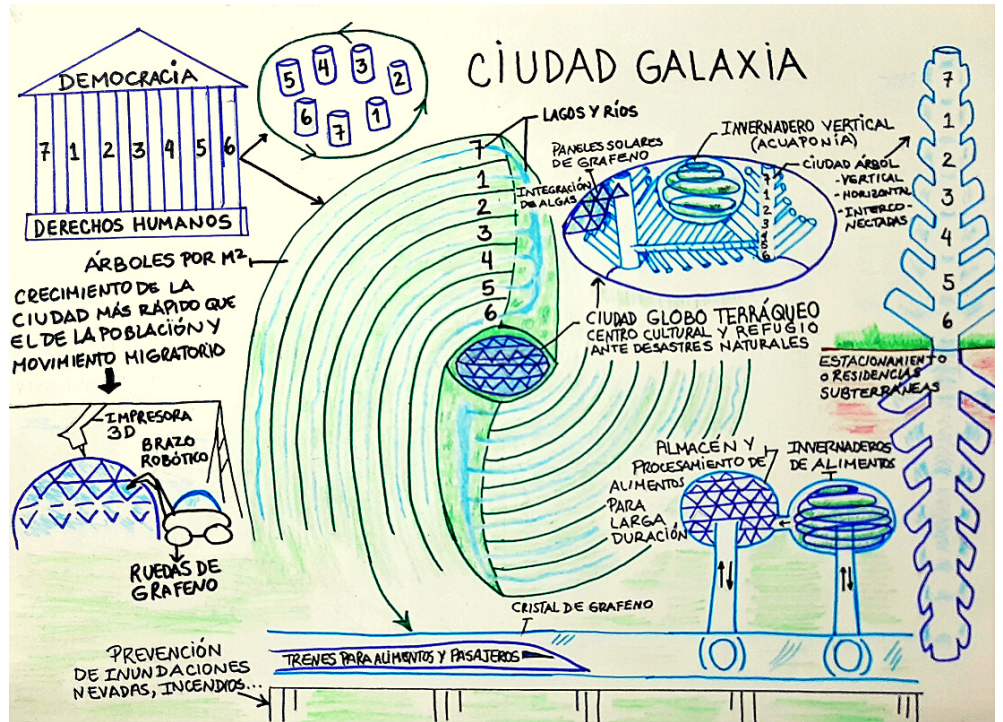 CIUDAD GALAXIA
DEMOCRACIA
7 1 2 3 4 5 6
DERECHOS HUMANOS
5 4 3 2
6 7 1
ÁRBOLES POR M²
CRECIMIENTO DE LA
CIUDAD MÁS RÁPIDO QUE
EL DE LA POBLACIÓN Y
MOVIMIENTO MIGRATORIO
IMPRESORA
3D
BRAZO
ROBÓTICO
RUEDAS DE
GRAFENO
PREVENCIÓN
DE INUNDACIONES
NEVADAS, INCENDIOS...
LAGOS Y RÍOS
7
1
2
3
4
5
6
PANELES SOLARES
DE GRAFENO
INTEGRACIÓN
DE ALGAS
INVERNADERO VERTICAL
(ACUAPONÍA)
CIUDAD ÁRBOL
-VERTICAL
-HORIZONTAL
-INTERCO-
NECTADAS
7
1
2
3
4
5
6
CIUDAD GLOBO TERRÁQUEO
CENTRO CULTURAL Y REFUGIO
ANTE DESASTRES NATURALES
7
1
2
3
4
5
6
ESTACIONAMIENTO
O RESIDENCIAS
SUBTERRÁNEAS
ALMACÉN Y
PROCESAMIENTO DE
ALIMENTOS
PARA
LARGA
DURACIÓN
INVERNADEROS
DE ALIMENTOS
CRISTAL DE GRAFENO
TRENES PARA ALIMENTOS Y PASAJEROS